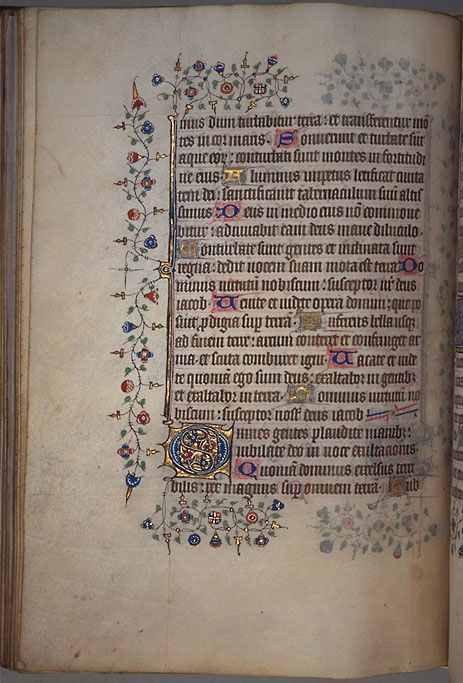 mus dum turbabitur terra: et transferentur mo
tes in cor maris. Sonuerunt et turbate sūt
aque eoꝝ: conturbati sunt montes in fortitudi
ne eius. Fluminis impetus letificat ciuita
tem dei: sanctificauit tabernaculum suū altis
simus. Deus in medio eius nō commoue
bitur: adiuuabit eam deus mane diluculo.
Conturbate sunt gentes et inclinata sunt
regna: dedit uocem suam mota est terra. Do
minus uirtutū nobiscum: susceptor nr̄ deus
iacob. Uenite et uidete opera domini: que po
suit ꝓdigia suꝑ terrā. Auferens bella usqꝫ
ad finem terre: arcum conteret et confringet ar
ma et scuta comburet igni. Uacate et uide
te quoniā ego sum deus: exaltabor in gentibꝫ
et exaltabor in terra. Dominus uirtutū no
biscum: susceptor noster deus iacob
Omnes gentes plaudite manibꝫ:
iubilate deo in uoce exultacionis.
Quoniā dominus excelsus terri
bilis: rex magnus suꝑ omnem terrā. Sub